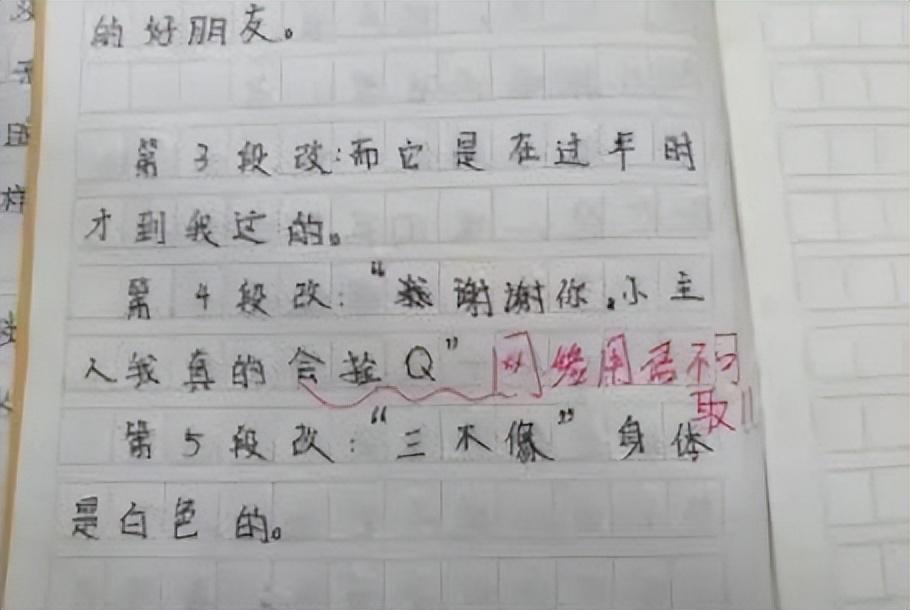 的好朋友。
第3段改:而它是在过年时
才到我这的。
第4段改:“谢谢你,小主
人我真的会拴Q” 网络用语不可
取!!
第5段改:“三不像”身体
是白色的。